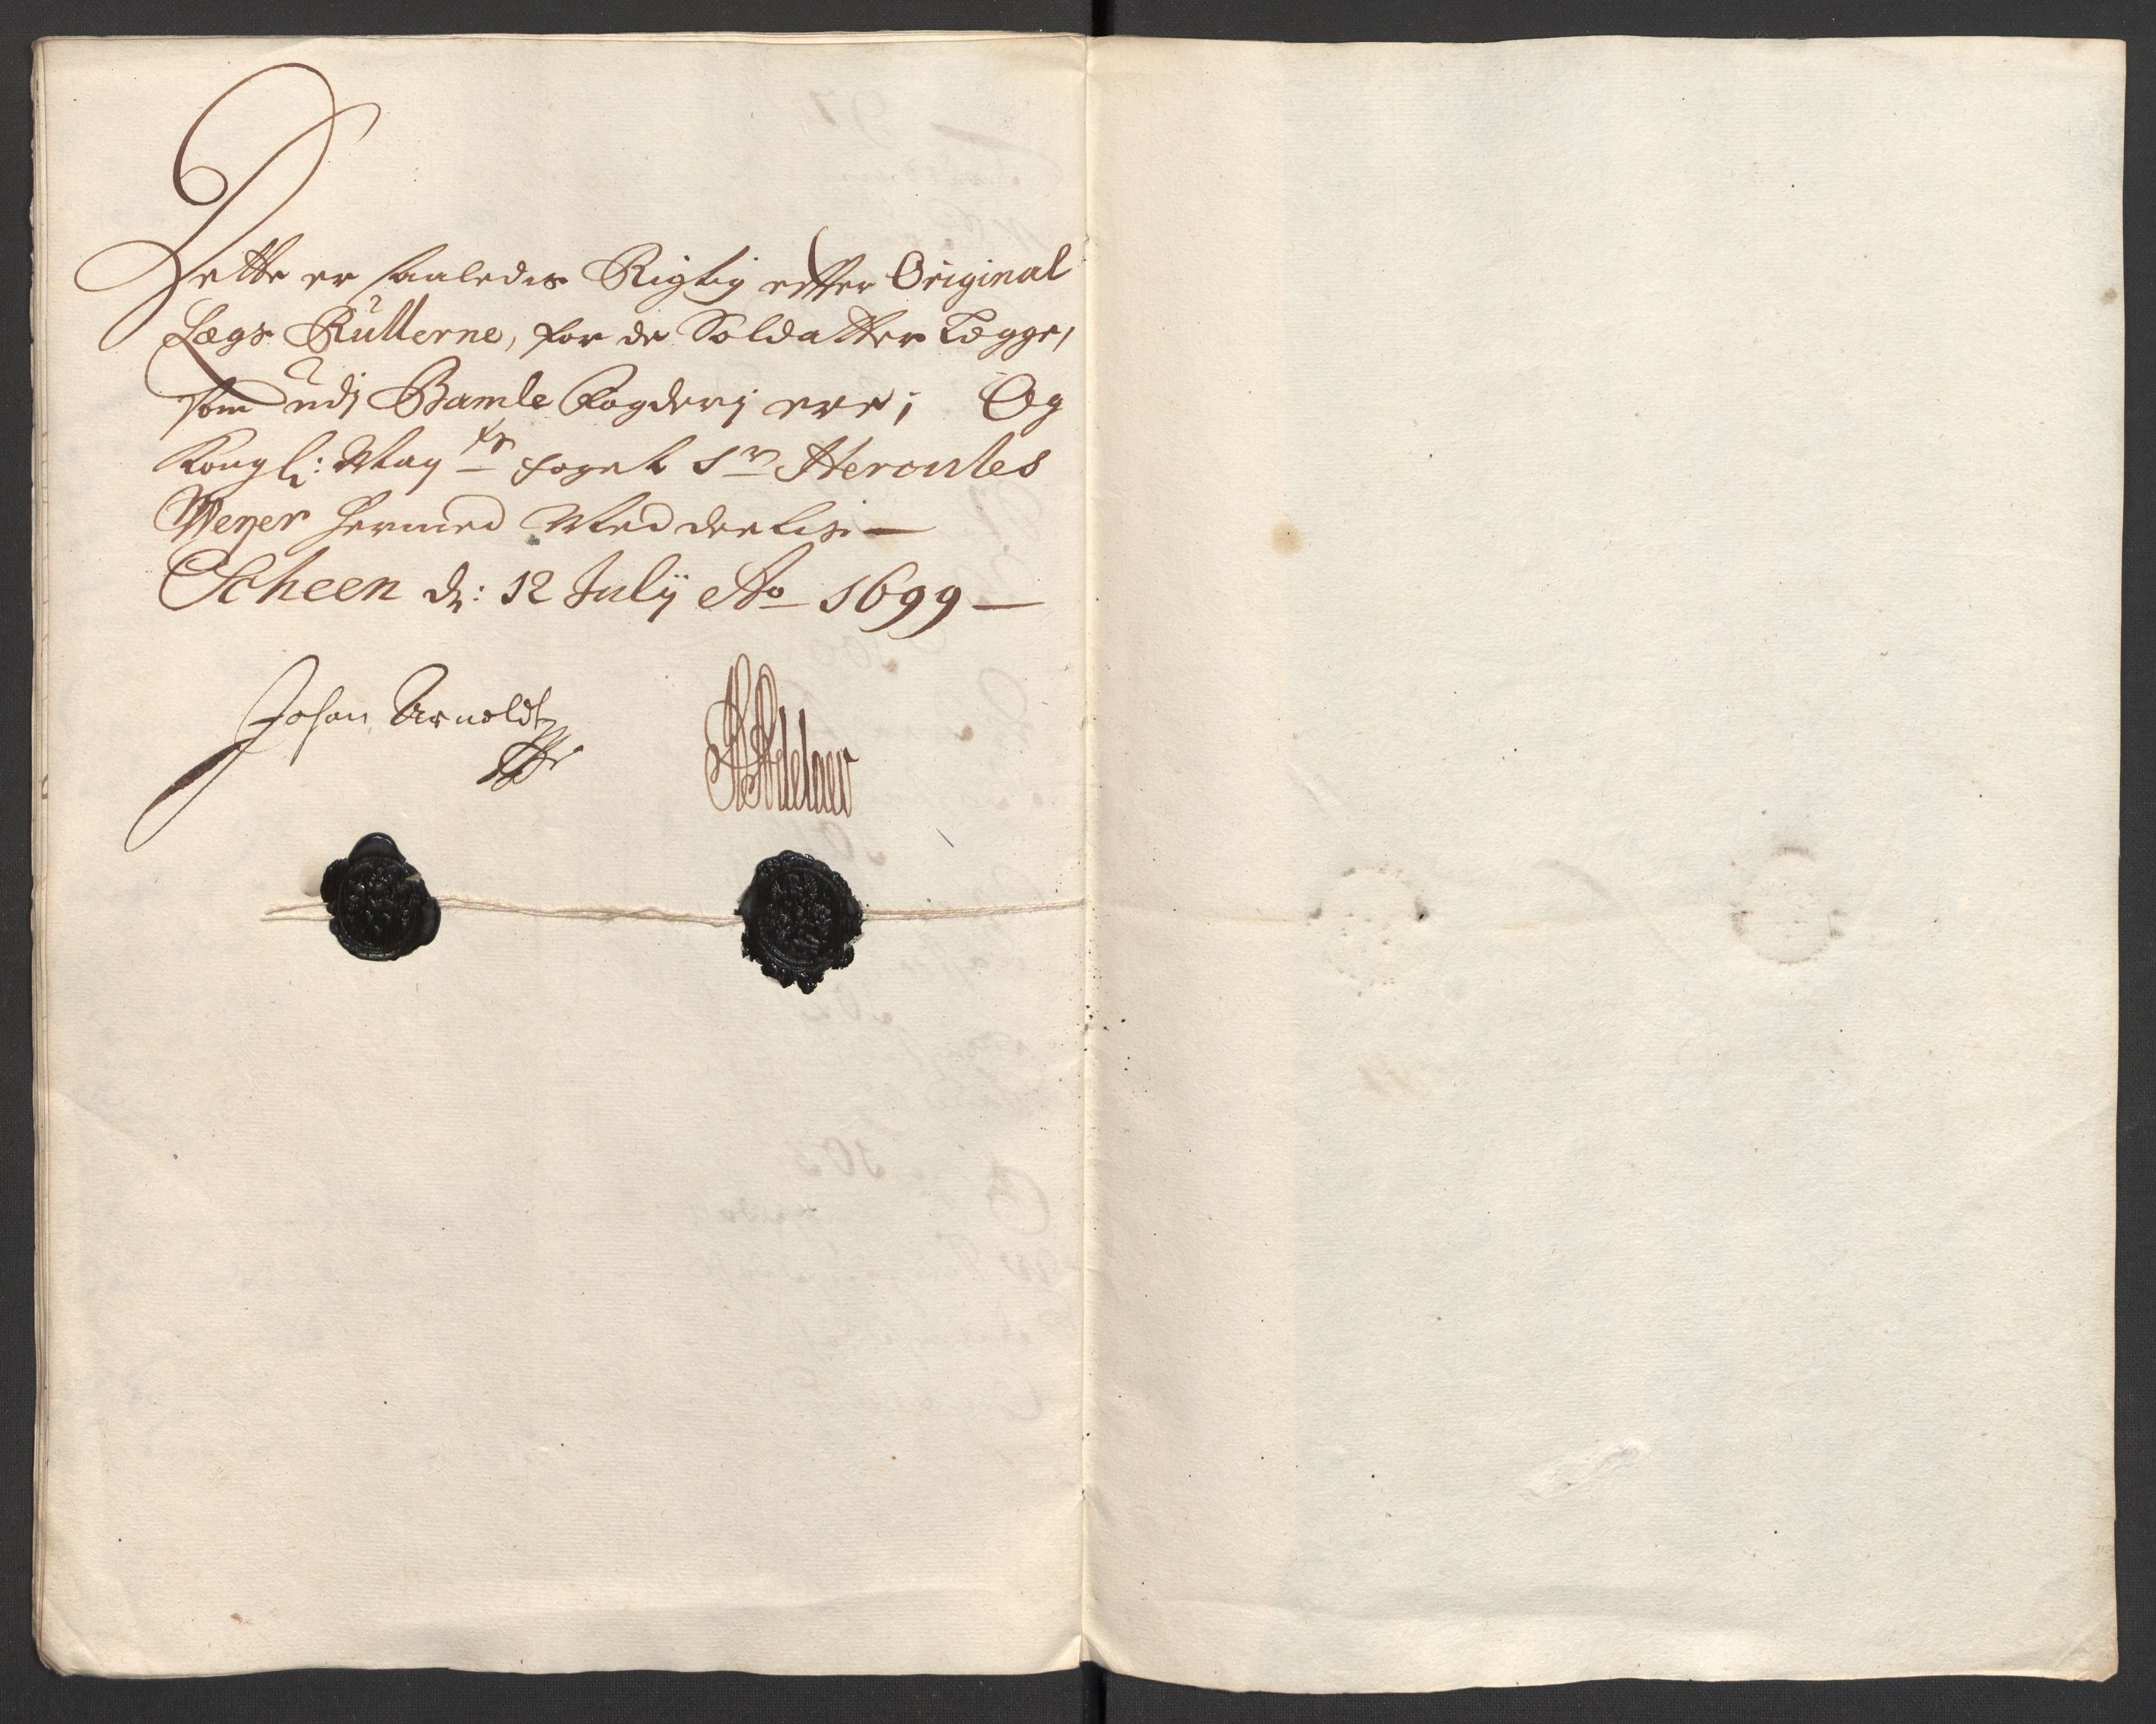 Dette er saaledis Rigtig effter Original
Lægs Rullerne, for de Soldatter Lægge,
som udj Bamle fogderj ere; Og
Kongl: May:ts foget Sr Hercules
Weÿer hermed Meddeelis
Scheen d: 12 Julÿ Ao 1699
Johan Arnoldt
Adelaer